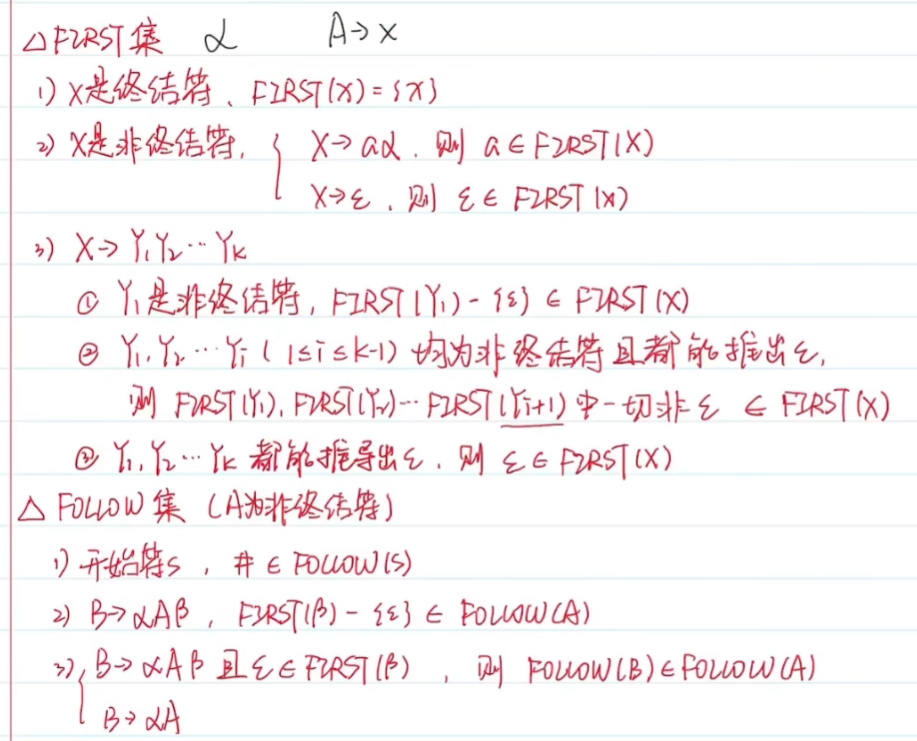 △FIRST集 α A→x
1) X是终结符、FIRST(X)={X}
2) X是非终结符, { X→aα, 则 a∈FIRST(X)
X→ε, 则 ε∈FIRST(X)
3) X→Y₁Y₂…Yₖ
① Y₁是非终结符, FIRST(Y₁)-{ε}∈FIRST(X)
② Y₁,Y₂…Yᵢ (1≤i≤k-1) 均为非终结符且都能推出ε,
则 FIRST(Y₁), FIRST(Y₂)…FIRST(Yi+1)中一切非ε ∈ FIRST(X)
③ Y₁,Y₂…Yₖ 都能推导出ε, 则 ε∈FIRST(X)
△ FOLLOW集 (A为非终结符)
1) 开始符S, #∈FOLLOW(S)
2) B→αAβ, FIRST(β)-{ε}∈FOLLOW(A)
3) { B→αAβ 且 ε∈FIRST(β), 则 FOLLOW(B)∈FOLLOW(A)
B→αA